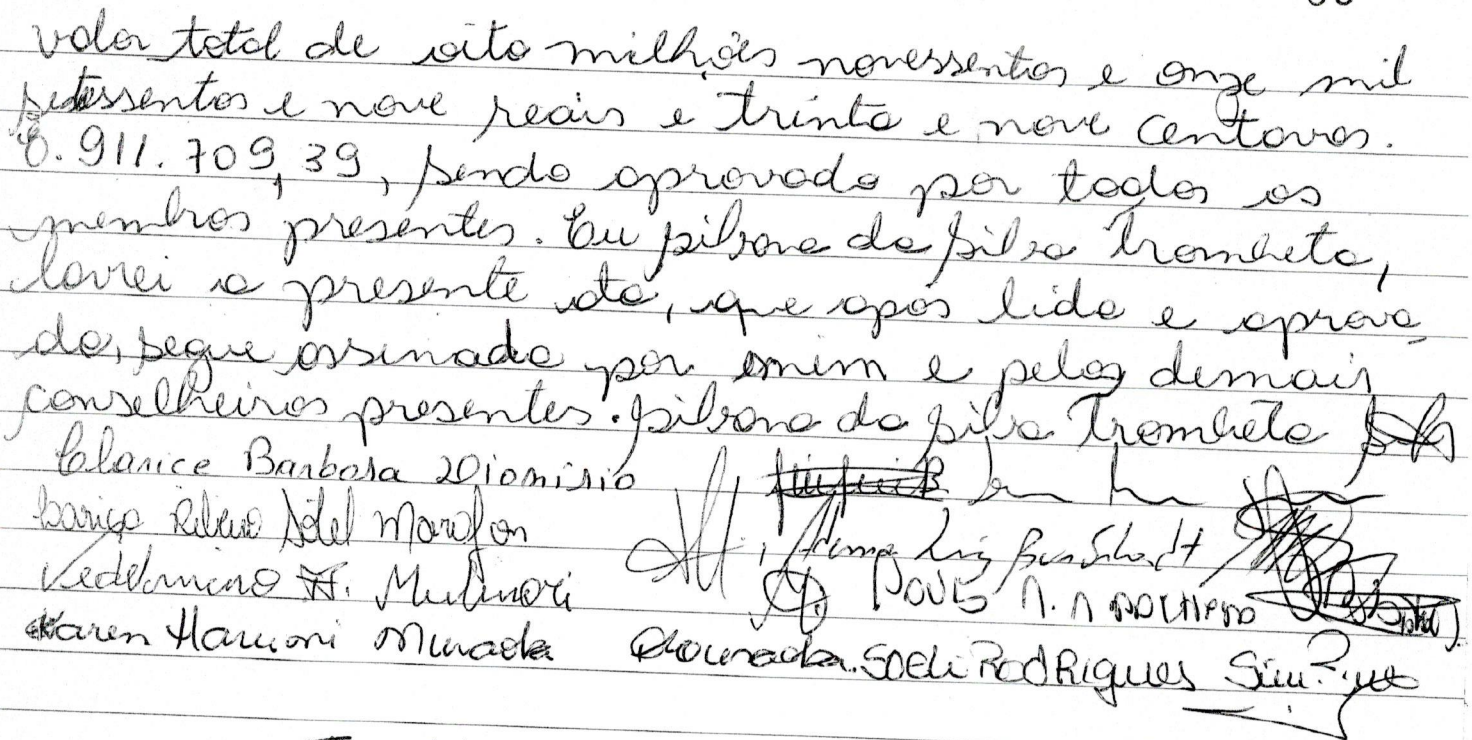 valor total de oito milhões novessentos e onze mil
setessentos e nove reais e trinta e nove centavos.
8.911.709,39, sendo aprovado por todos os
membros presentes. Eu Silvana da Silva Trombeta,
lavrei a presente ata, que após lida e aprova
da, segue assinada por mim e pelos demais
conselheiros presentes. Silvana da Silva Trombeta
Clarice Barbosa Dionisio
Marafon
Karen Harumi Soeli Rodrigues